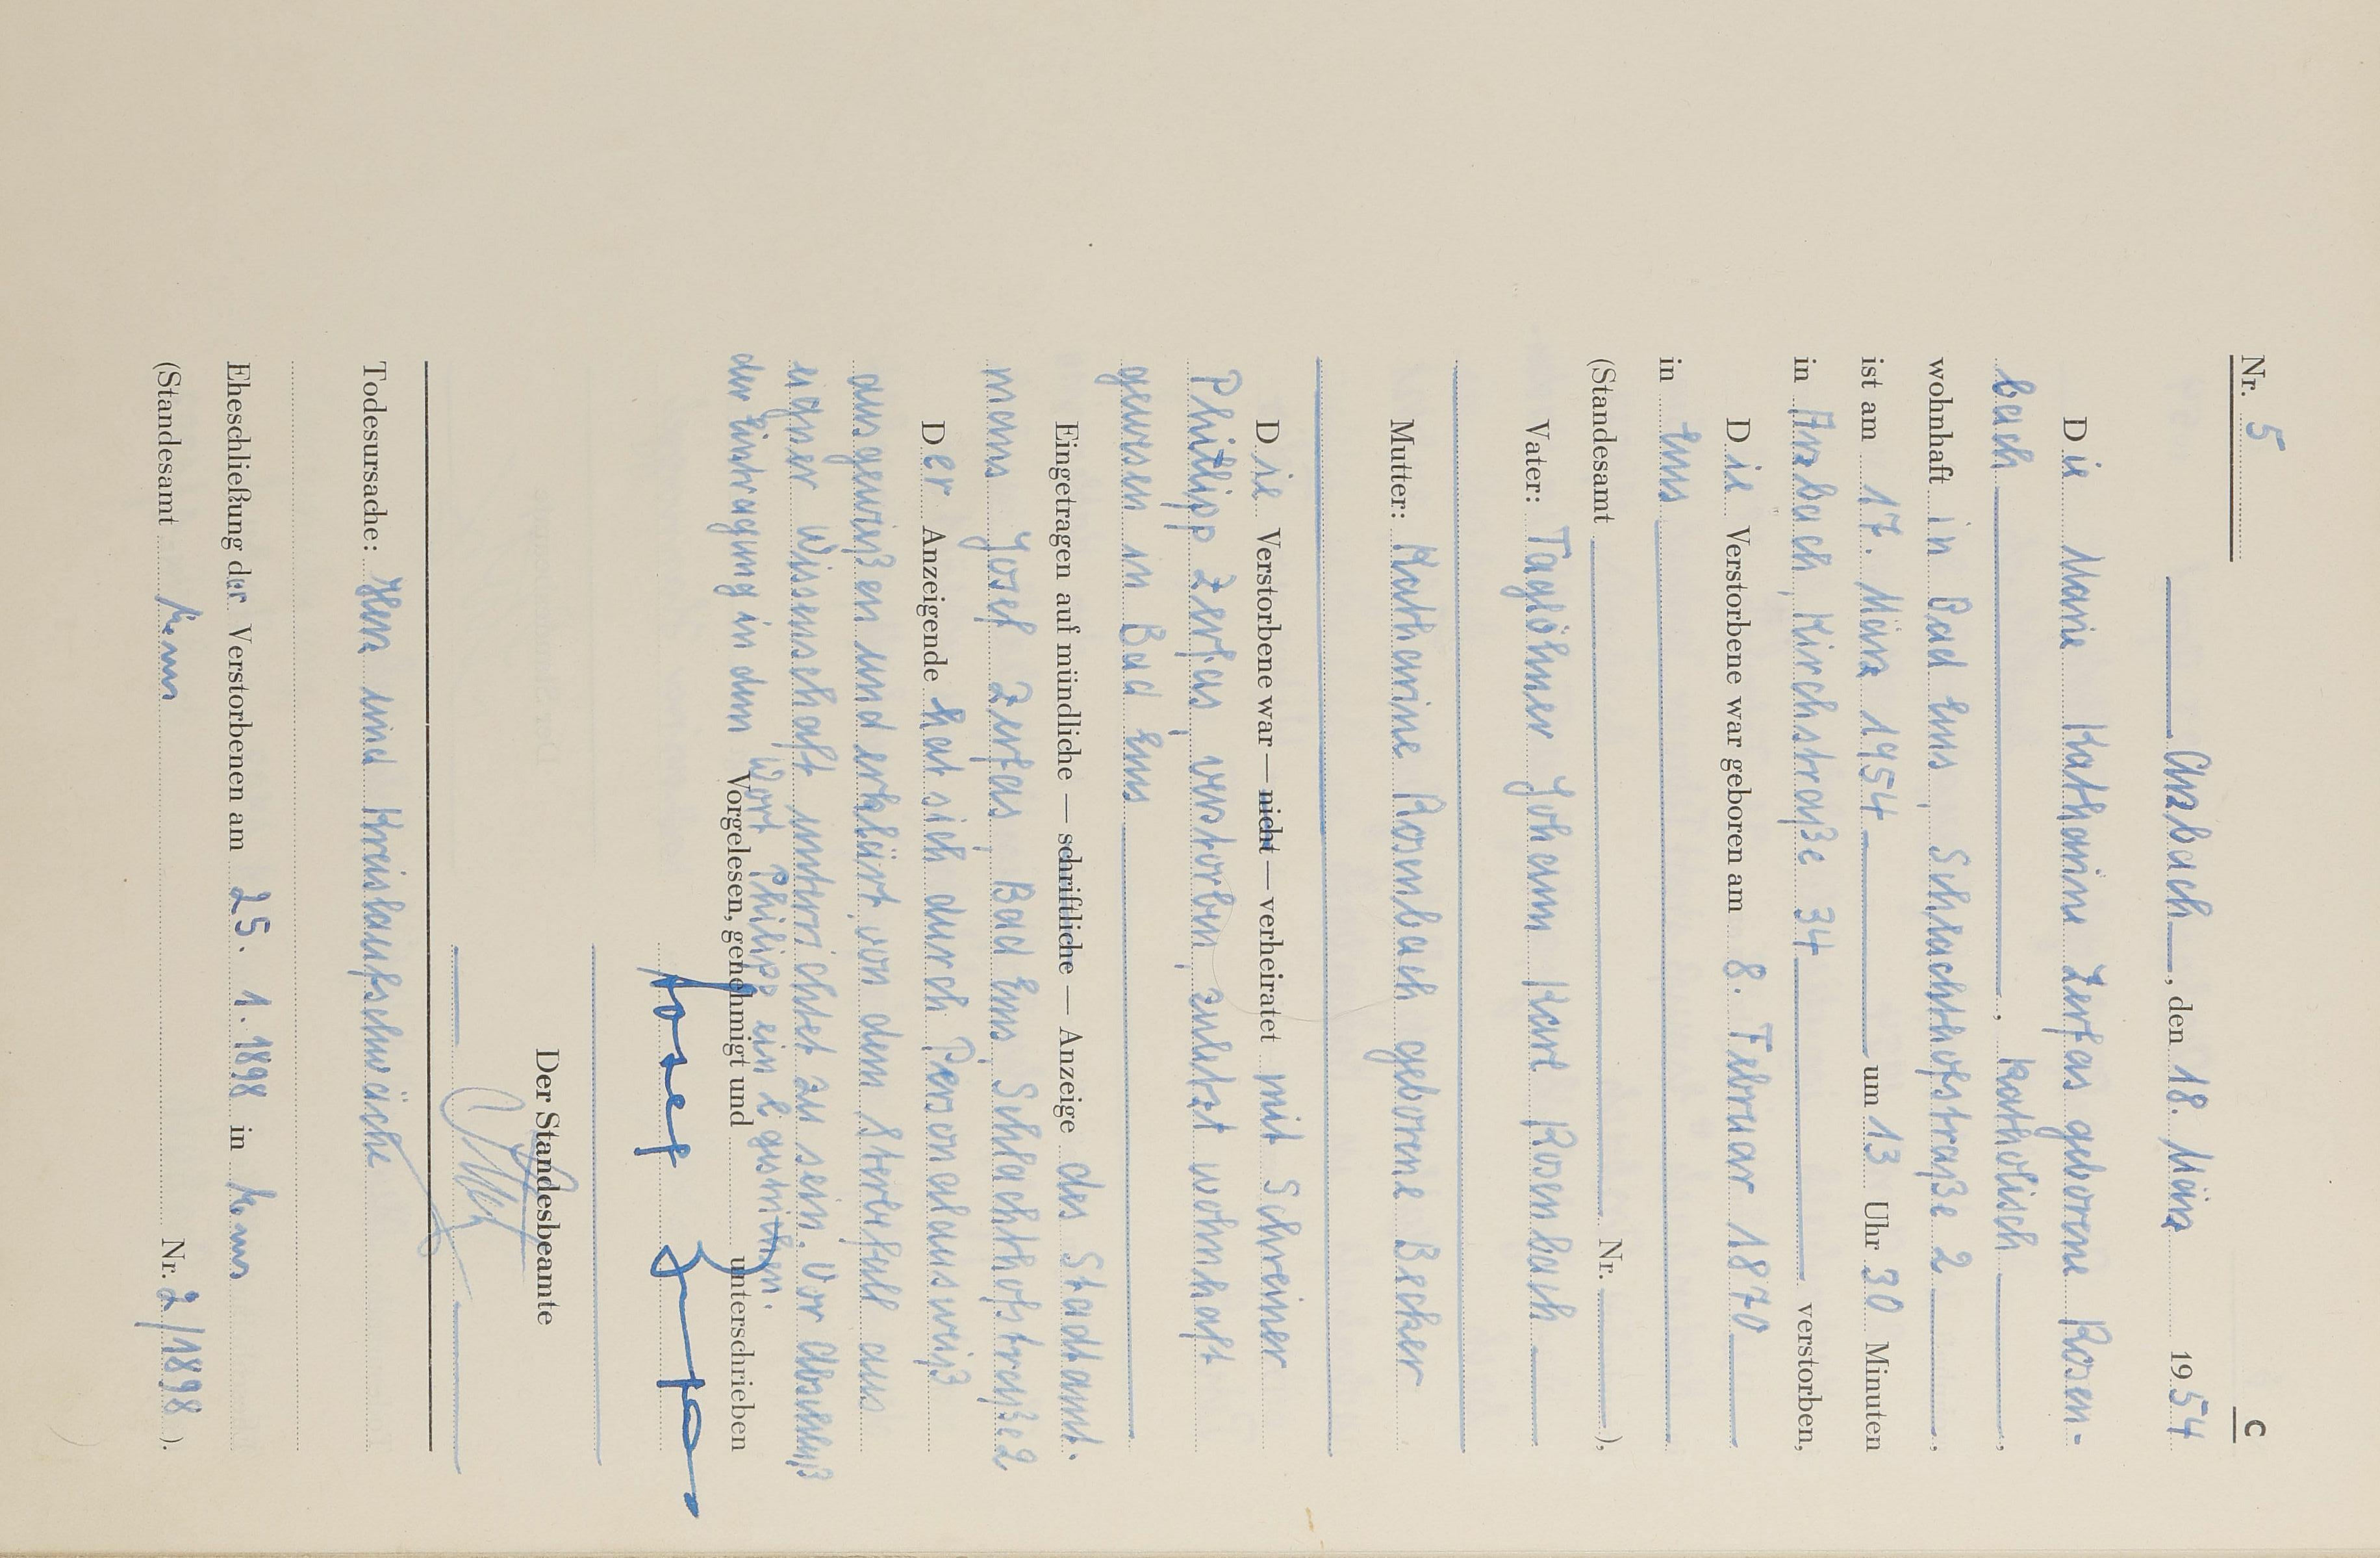 Nr. 5
C
Arzbach, den 18. März 1954
Die Marie Katharine Zerfas geborene Rosen-
bach, katholisch,
wohnhaft in Bad Ems, Schlachthofstraße 2,
ist am 17. März 1954 um 13 Uhr 30 Minuten
in Arzbach, Kirchstraße 34 verstorben,
Die Verstorbene war geboren am 8. Februar 1870
in Ems
(Standesamt Nr. ),
Vater: Taglöhner Johann Karl Rosenbach
Mutter: Katharine Rosenbach geborene Becker
Die Verstorbene war — nicht — verheiratet mit Schreiner
Philipp Zerfas, verstorben, zuletzt wohnhaft
gewesen in Bad Ems
Eingetragen auf mündliche — schriftliche — Anzeige des Stadtamt.
manns Josef Zerfas, Bad Ems, Schlachthofstraße 2
Der Anzeigende hat sich durch Personalausweiß
ausgewißen und erklärt, von dem Sterbefall aus
eigner Wissenschaft unterrichtet zu sein. Vor Abschluß
der Eintragung in dem Wort Philipp ein l gestrichen.
Vorgelesen, genehmigt und unterschrieben
Josef Zerfas
Der Standesbeamte
Todesursache: Herz und Kreislaufschwäche
Eheschließung der Verstorbenen am 25. 1. 1898 in Ems
(Standesamt Ems Nr. 2/1898 ).